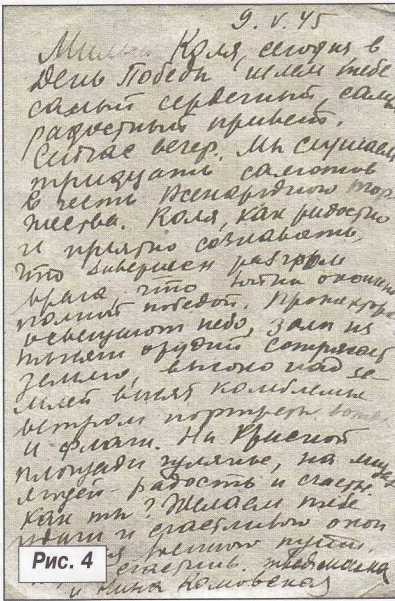 9. V. 45
Милый Коля, сегодня в
День Победы шлем тебе
самый сердечный, самый
радостный привет.
Сейчас вечер. Мы слушаем
тридцать салютов
в честь всенародного тор
жества. Коля, как радостно
и приятно сознавать,
что завершен разгром
врага что окончена
полной победой. Прожектора
освещают небо, залп из
тысячи орудий сотрясает
землю, высоко над зе
млей висят колеблемые
ветром портреты
и флаги. На Красной
площади гулянье, на лицах
людей - радость и счастье.
Как ты? Желаем тебе
удачи и счастливого окон
военного пути.
счастлив. Твоя мама
и Нина Комовская
Рис. 4